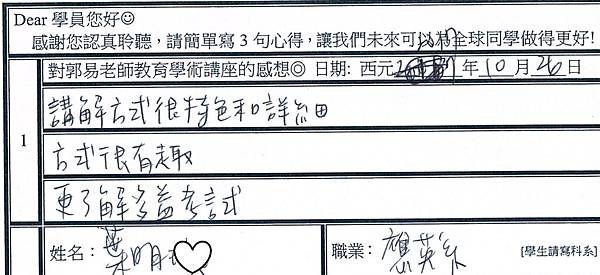 Dear 學員您好☺
感謝您認真聆聽，請簡單寫 3 句心得，讓我們未來可以為全球同學做得更好!
對郭易老師教育學術講座的感想◎ 日期: 西元 年 10 月 26 日
1
講解方式很特色和詳細
方式很有趣
更了解多益考試
姓名： 葉明 ♡
職業： 應英系 [學生請寫科系]